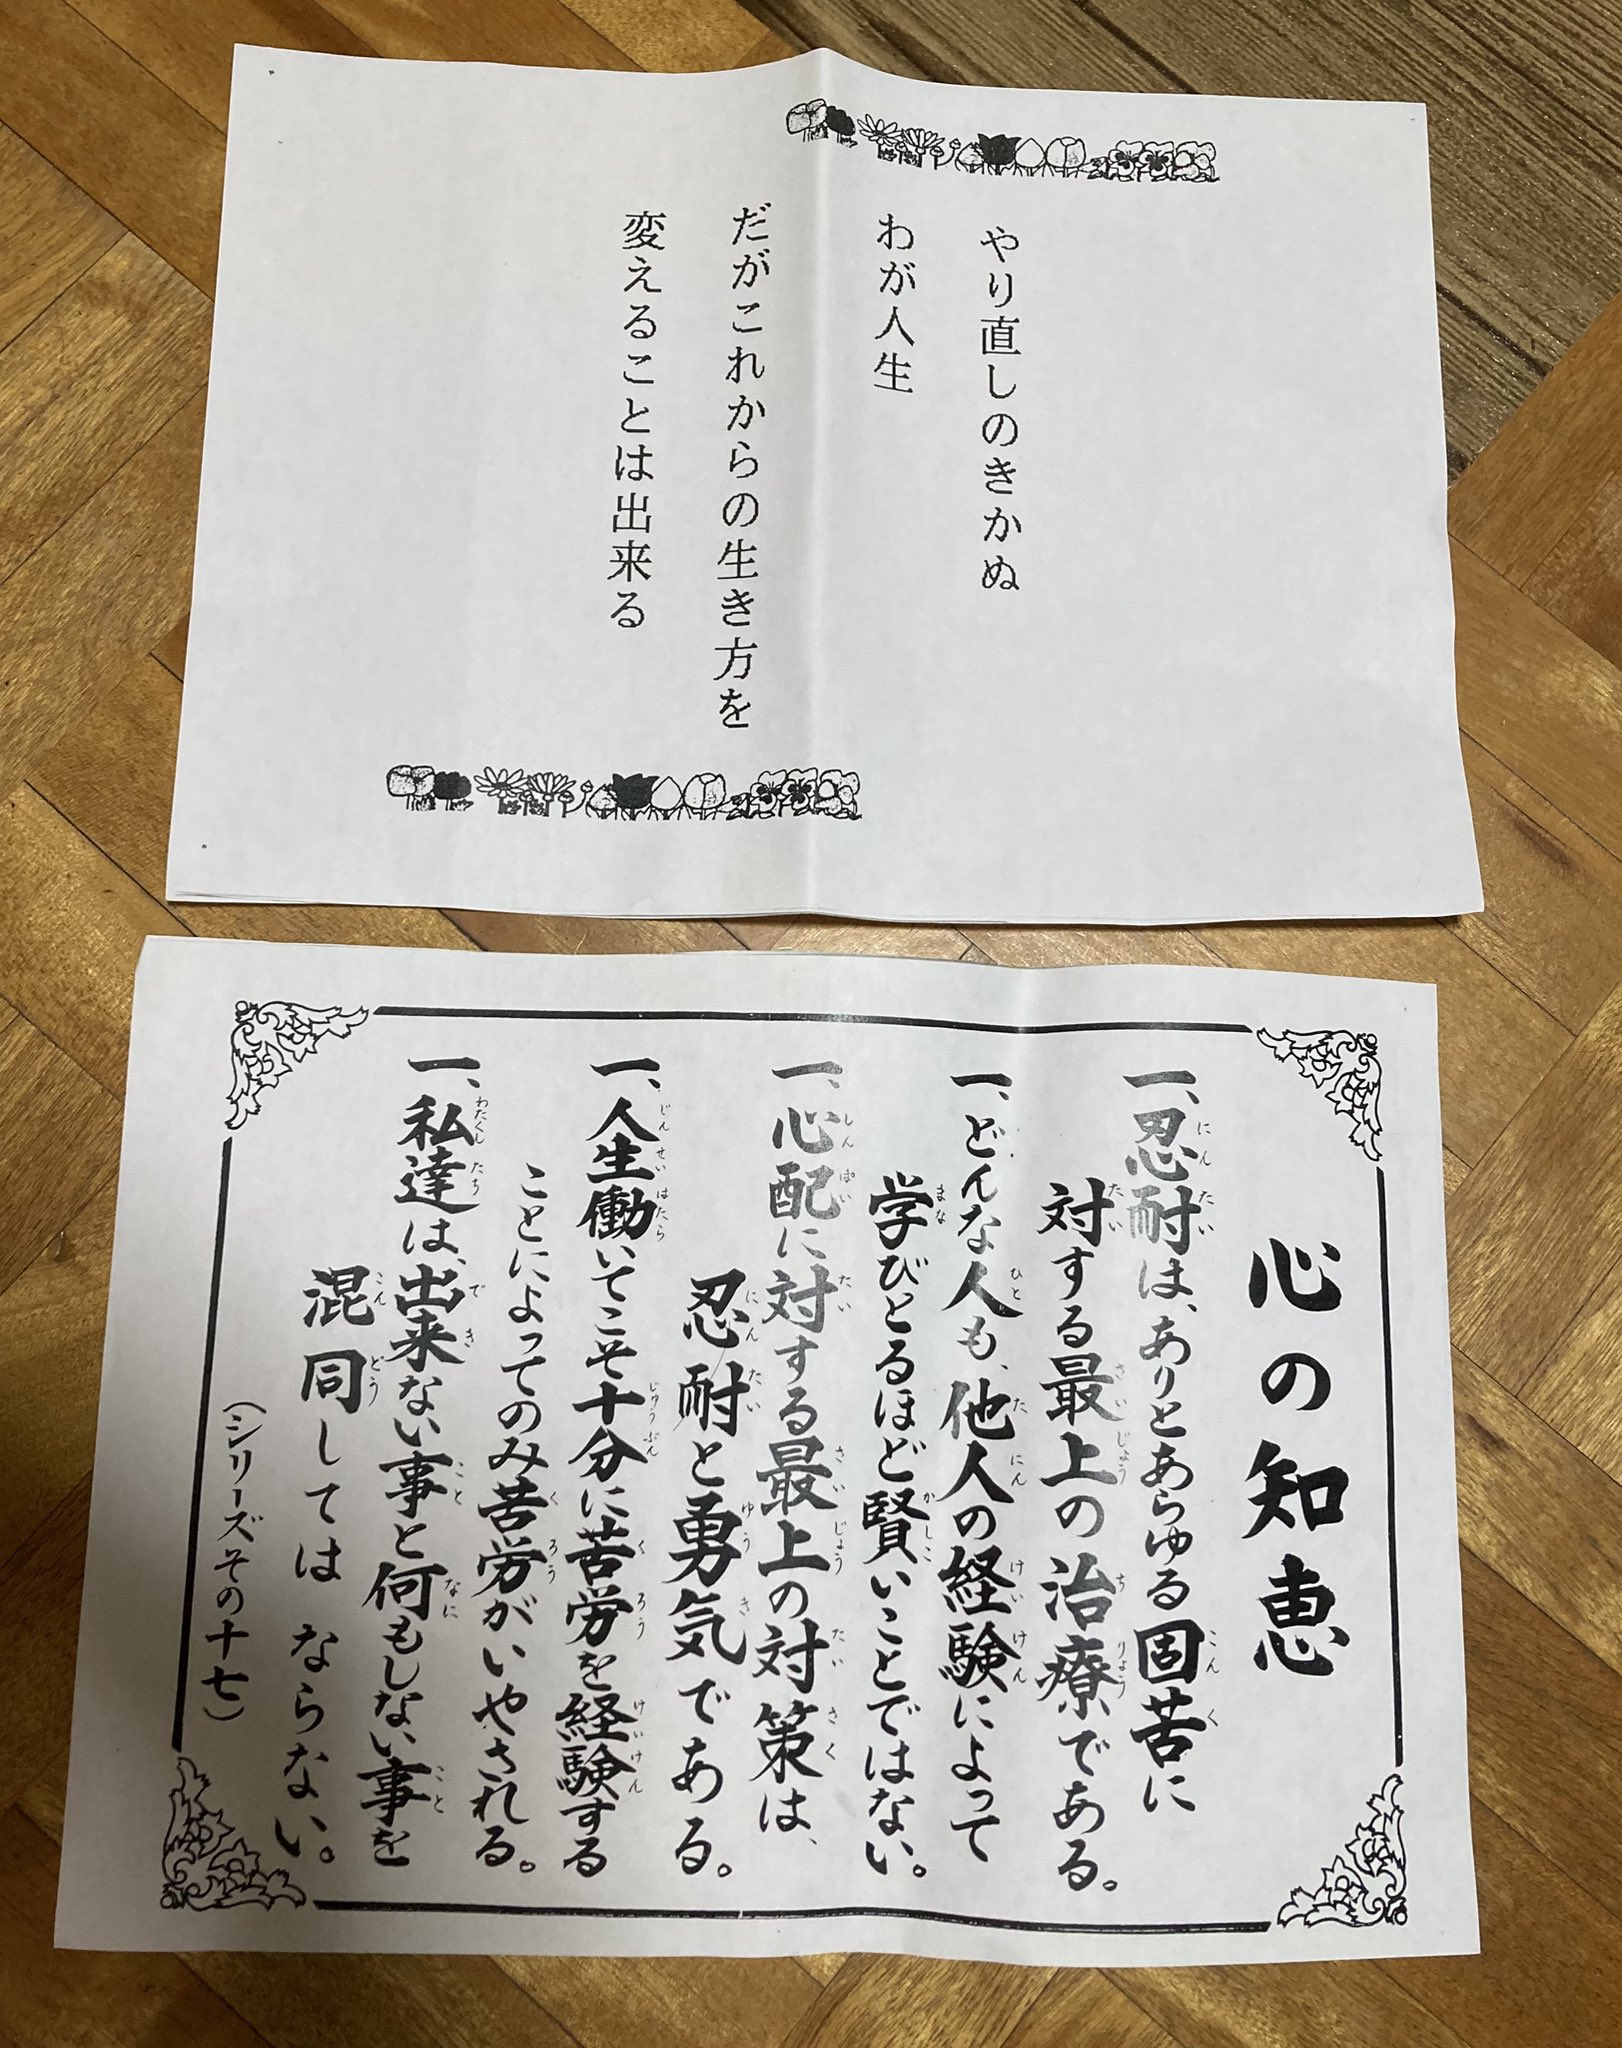 やり直しのきかぬ
わが人生
だがこれからの生き方を
変えることは出来る
心の知恵
一、忍耐は、ありとあらゆる固苦に
対する最上の治療である。
一、どんな人も、他人の経験によって
学びとるほど賢いことではない。
一、心配に対する最上の対策は、
忍耐と勇気である。
一、人生働いてこそ十分に苦労を経験する
ことによってのみ苦労がいやされる。
一、私達は、出来ない事と何もしない事を
混同しては ならない。
(シリーズその十七)